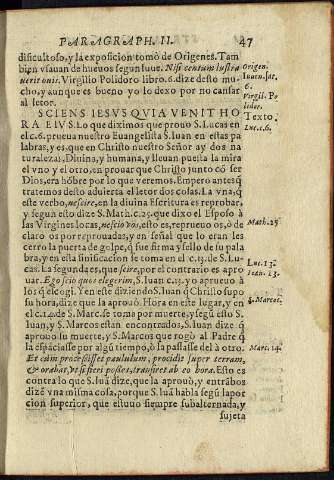 PARAGRAPH. II. 47
dificultoso, y la exposicion tomò de Origenes. Tam
bien vsauan de hueuos segun Iuue. Nisi centum lustra
uerit ouis. Virgilio Polidoro libro. 6. dize desto mu
cho, y aunque es bueno yo lo dexo por no cansar
al letor.
SCIENS IESVS QVIA VENIT HO
RA EIVS. Lo que diximos que prouo S. Lucas en
el c. 6. prueua nuestro Euangelista S. Iuan en estas pa
labras, y es, que en Christo nuestro Señor ay dos na
turalezas, Diuina, y humana, y lleuan puesta la mira
el vno y el otro, en prouar que Christo junto cõ ser
Dios, era hõbre por lo que veremos. Empero antes q̃
tratemos desto aduierta el letor dos cosas. La vna, q̃
este verbo, nescire, en la diuina Escritura es reprobar,
y segun esto dize S. Math. c. 25. que dixo el Esposo à
las Virgines locas, nescio vos, esto es, reprueuo os, ò de
claro os por reprouadas, y en señal que lo eran les
cerro la puerta de golpe, q̃ fue firma y sello de su pala
bra, y en esta sinificacion se toma en el c. 13. de S. Lu-
cas. La segunda es, que scire, por el contrario es apro
uar. Ego scio quos elegerim, S. Iuan c. 13. yo aprueuo à
los q̃ elegi. Y en este diziendo S. Iuan q̃ Christo supo
su hora, dize que la aprouò. Hora en este lugar, y en
el c. 14. de S. Marc. se toma por muerte, y segũ esto S.
Iuan, y S. Marcos estan encontrados, S. Iuan dize q̃
aprouo su muerte, y S. Marcos que rogò al Padre q̃
la espaciasse por algũ tiempo, ò la passasse del à otro.
Et cùm processisset paululum, procidit super terram,
& orabat, vt si fieri posset, transiret ab eo hora. Esto es
contra lo que S. Iuã dize, que la aprouò, y entrãbos
dizẽ vna misma cosa, porque S. Iuã habla segũ la por
cion superior, que estuuo siempre subalternada, y
sujeta
Origen.
Iuuen. sat.
6.
Virgil. Po
lidor.
Texto.
Luc. c. 6.
Math. 25
Luc. 13.
Ioan. 13.
S. Marcos.
Marc. 14.